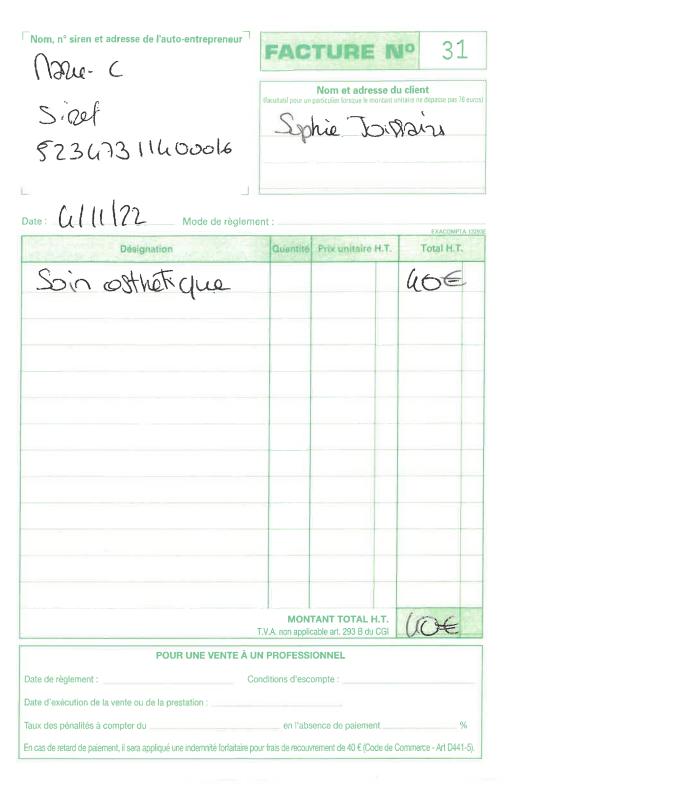 Nom, n° siren et adresse de l'auto-entrepreneur
Marie-C
Siret
52347311400016
FACTURE N° 31
Nom et adresse du client
(facultatif pour un particulier lorsque le montant unitaire ne dépasse pas 76 euros)
Sophie
Date : 4/11/22 Mode de règlement :
EXACOMPTA 13293E
Désignation Quantité Prix unitaire H.T. Total H.T.
Soin esthétique 40€
MONTANT TOTAL H.T.
T.V.A. non applicable art. 293 B du CGI 40€
POUR UNE VENTE À UN PROFESSIONNEL
Date de règlement : Conditions d'escompte :
Date d'exécution de la vente ou de la prestation :
Taux des pénalités à compter du en l'absence de paiement %
En cas de retard de paiement, il sera appliqué une indemnité forfaitaire pour frais de recouvrement de 40 € (Code de Commerce - Art D441-5).